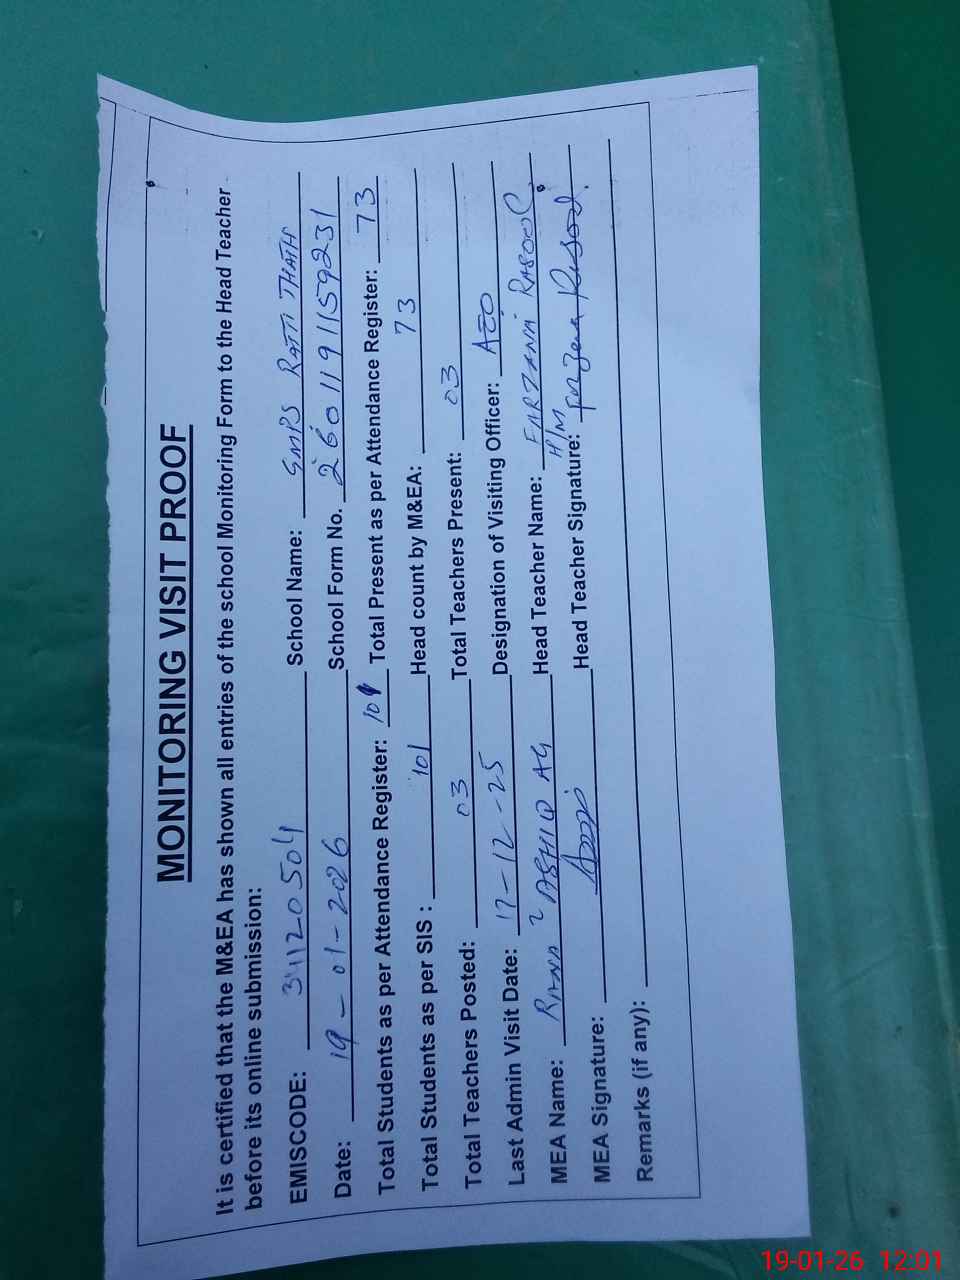 MONITORING VISIT PROOF
It is certified that the M&EA has shown all entries of the school Monitoring Form to the Head Teacher
before its online submission:
EMISCODE: 34120504 School Name: GMPS RATTI THATH
Date: 19-01-2026 School Form No. 2601191159231
Total Students as per Attendance Register: 101 Total Present as per Attendance Register: 73
Total Students as per SIS : 101 Head count by M&EA: 73
Total Teachers Posted: 03 Total Teachers Present: 03
Last Admin Visit Date: 17-12-25 Designation of Visiting Officer: AEO
MEA Name: RANA ASHIQ Head Teacher Name: FARZANA RASOOL
MEA Signature: H/M Head Teacher Signature: Farzana Rasool
Remarks (if any):
19-01-26 12:01